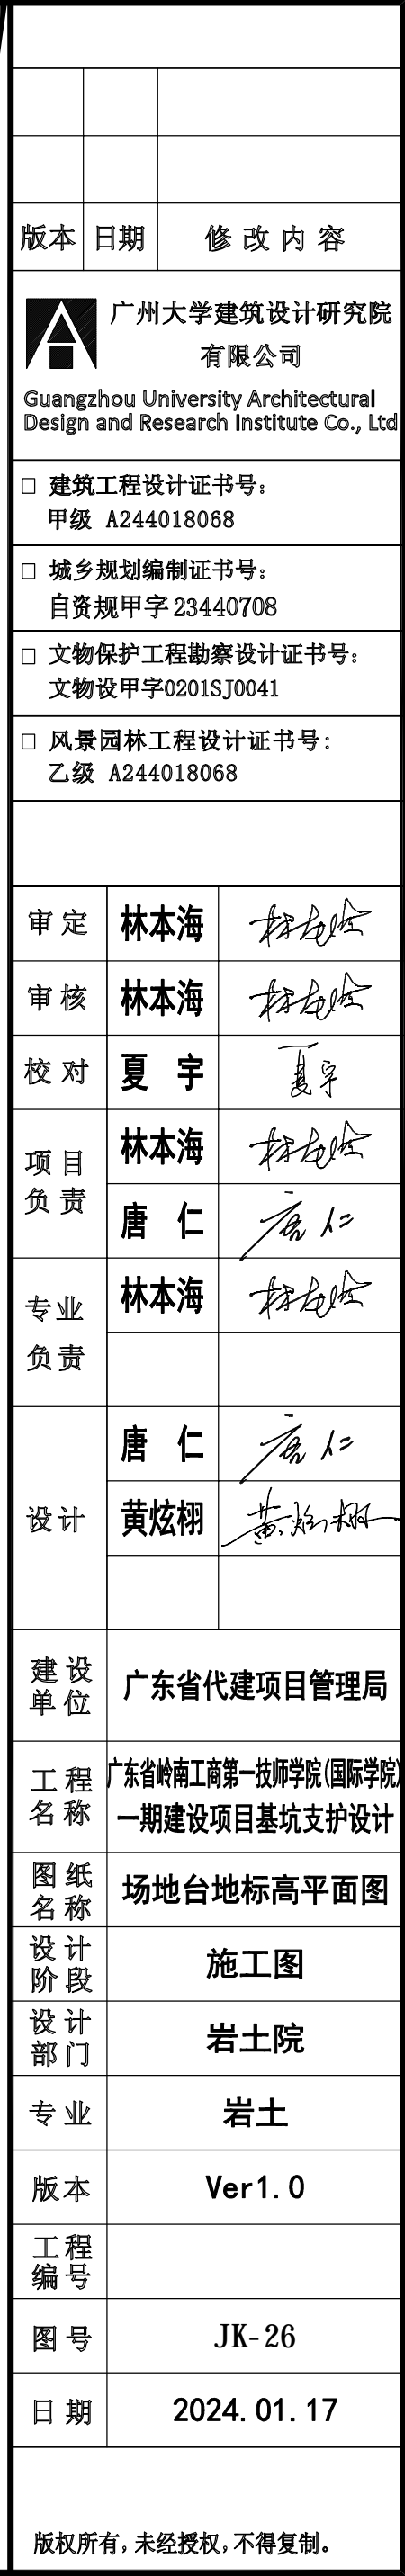 版本 日期 修改内容
广州大学建筑设计研究院
有限公司
Guangzhou University Architectural
Design and Research Institute Co., Ltd
□ 建筑工程设计证书号：
甲级 A244018068
□ 城乡规划编制证书号：
自资规甲字23440708
□ 文物保护工程勘察设计证书号：
文物设甲字0201SJ0041
□ 风景园林工程设计证书号：
乙级 A244018068
审定 林本海 林本海
审核 林本海 林本海
校对 夏宇 夏宇
项目
负责
林本海 林本海
唐仁 唐仁
专业
负责
林本海 林本海
设计
唐仁 唐仁
黄炫栩 黄炫栩
建设
单位
广东省代建项目管理局
工程
名称
广东省岭南工商第一技师学院(国际学院)
一期建设项目基坑支护设计
图纸
名称
场地台地标高平面图
设计
阶段
施工图
设计
部门
岩土院
专业 岩土
版本 Ver1.0
工程
编号
图号 JK-26
日期 2024.01.17
版权所有，未经授权，不得复制。